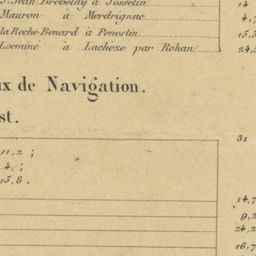 St Jean Brévelay à Josselin 14
Mauron à Merdrignac 4,
la Roche-Bernard à Penestin 15,5
Locminé à Lachèze par Rohan 24,
ux de Navigation.
st.
31
11,2 ;
4 ;
15,8 .
14,7
9,2
24,2
16,7